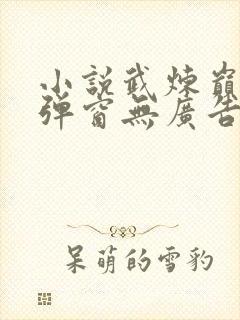 小説武煉巔
彈窗無廣告
呆萌的雪豹